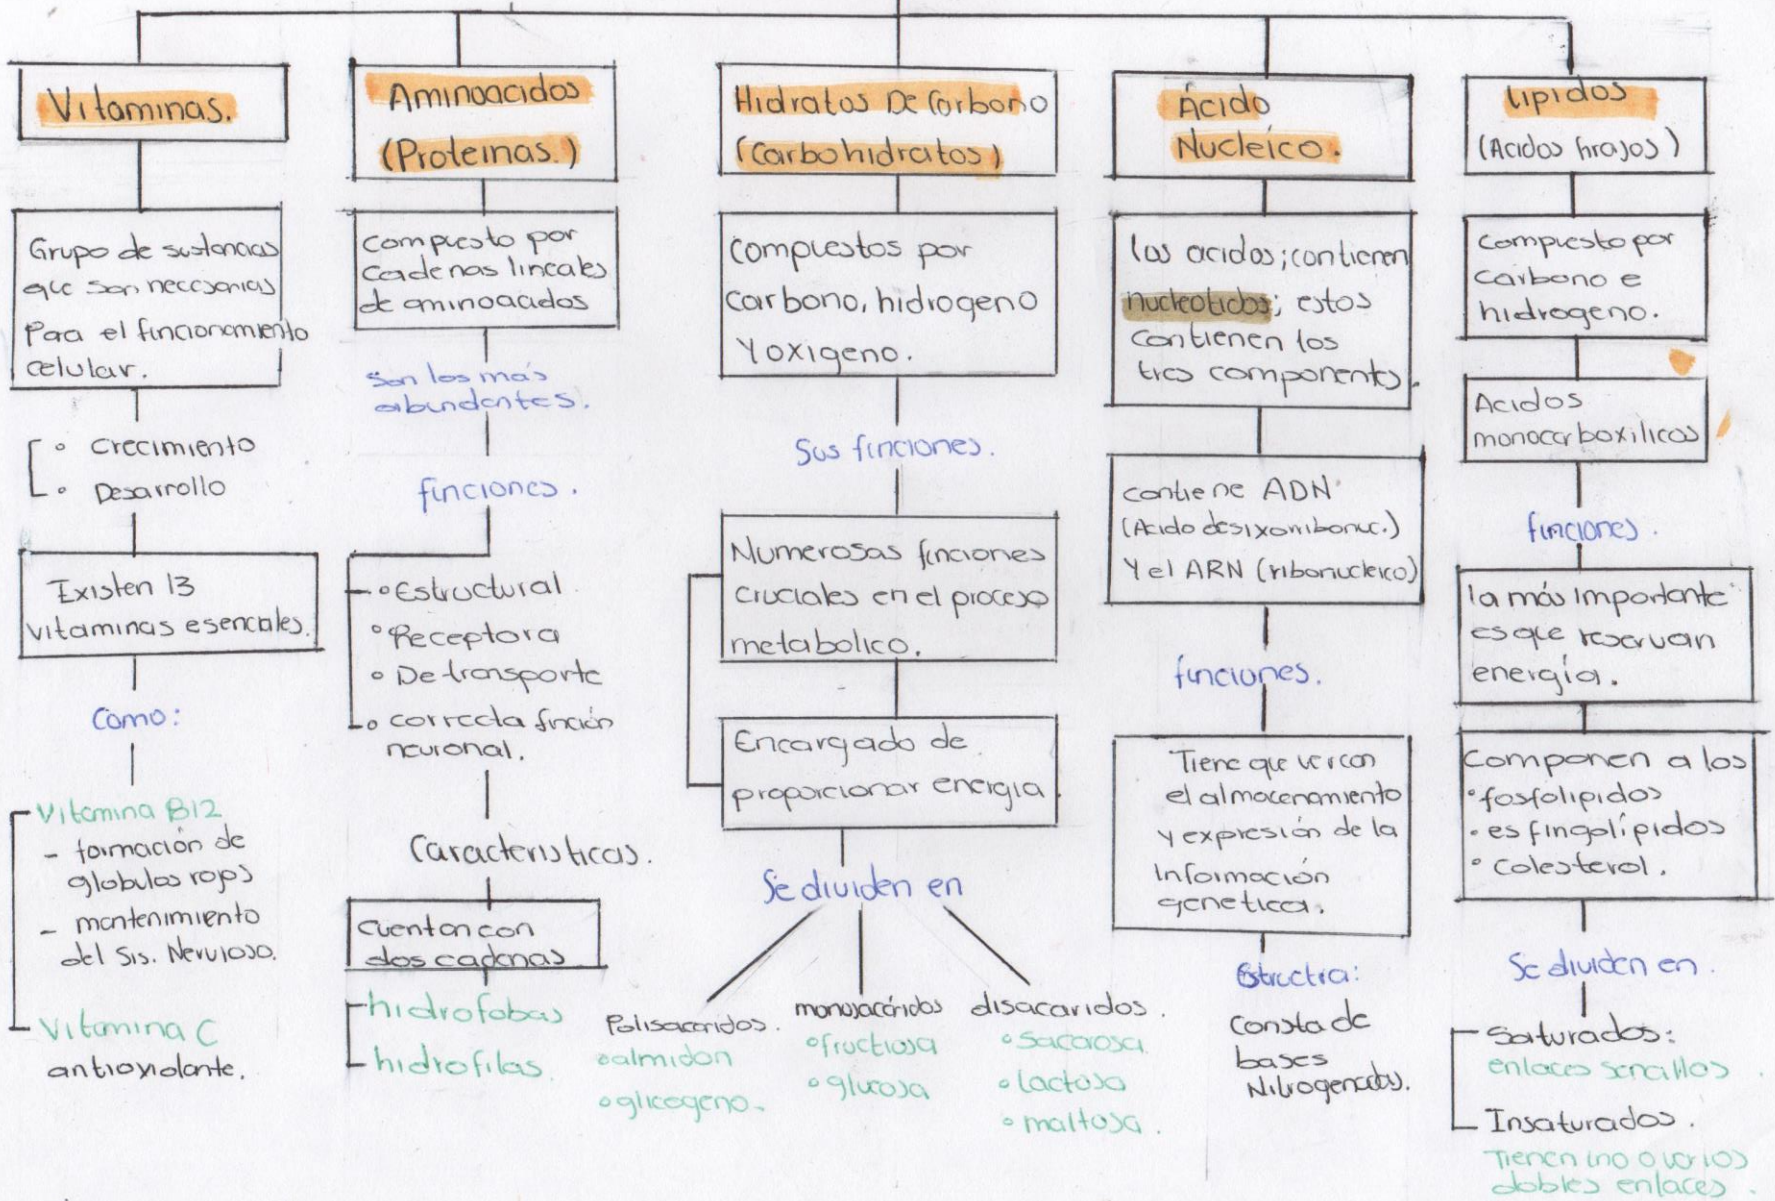 Vitaminas.
Grupo de sustancias
que son necesarias
Para el funcionamiento
celular.
° Crecimiento
° Desarrollo
Existen 13
vitaminas esenciales.
Como:
Vitamina B12
- formación de
globulos rojos
- mantenimiento
del Sis. Nervioso.
Vitamina C
antioxidante.
Aminoacidos
(Proteinas.)
Compuesto por
Cadenas lineales
de aminoacidos
Son los más
abundantes.
funciones.
° Estructural
° Receptora
° De transporte
° correcta función
neuronal.
Caracteristicas.
cuentan con
dos cadenas
hidrofobas
hidrofilas.
Hidratos De Carbono
(Carbohidratos)
Compuestos por
carbono, hidrogeno
Y oxigeno.
Sus funciones.
Numerosas funciones
cruciales en el proceso
metabolico.
Encargado de
proporcionar energia.
Se dividen en
Polisacaridos.
° almidon
° glicogeno.
monosacáridos
° fructosa
° glucosa
disacaridos.
° Sacarosa
° Lactosa
° maltosa.
Ácido
Nucleíco.
los acidos; contienen
nucleotidos; estos
contienen los
tres components.
contiene ADN
(Acido desixorribonuc.)
Y el ARN (ribonucleico)
funciones.
Tiene que ver con
el almacenamiento
y expresión de la
Información
genetica.
Estructra:
Consta de
bases
Nitrogenadas.
lipidos
(Acidos grasos)
Compuesto por
carbono e
hidrogeno.
Acidos
monocarboxilicos
funciones.
la más importante
es que reservan
energía.
Componen a los
° fosfolipidos
° esfingolípidos
° Colesterol.
Se dividen en.
Saturados:
enlaces sencillos.
Insaturados.
Tienen uno o varios
dobles enlaces.